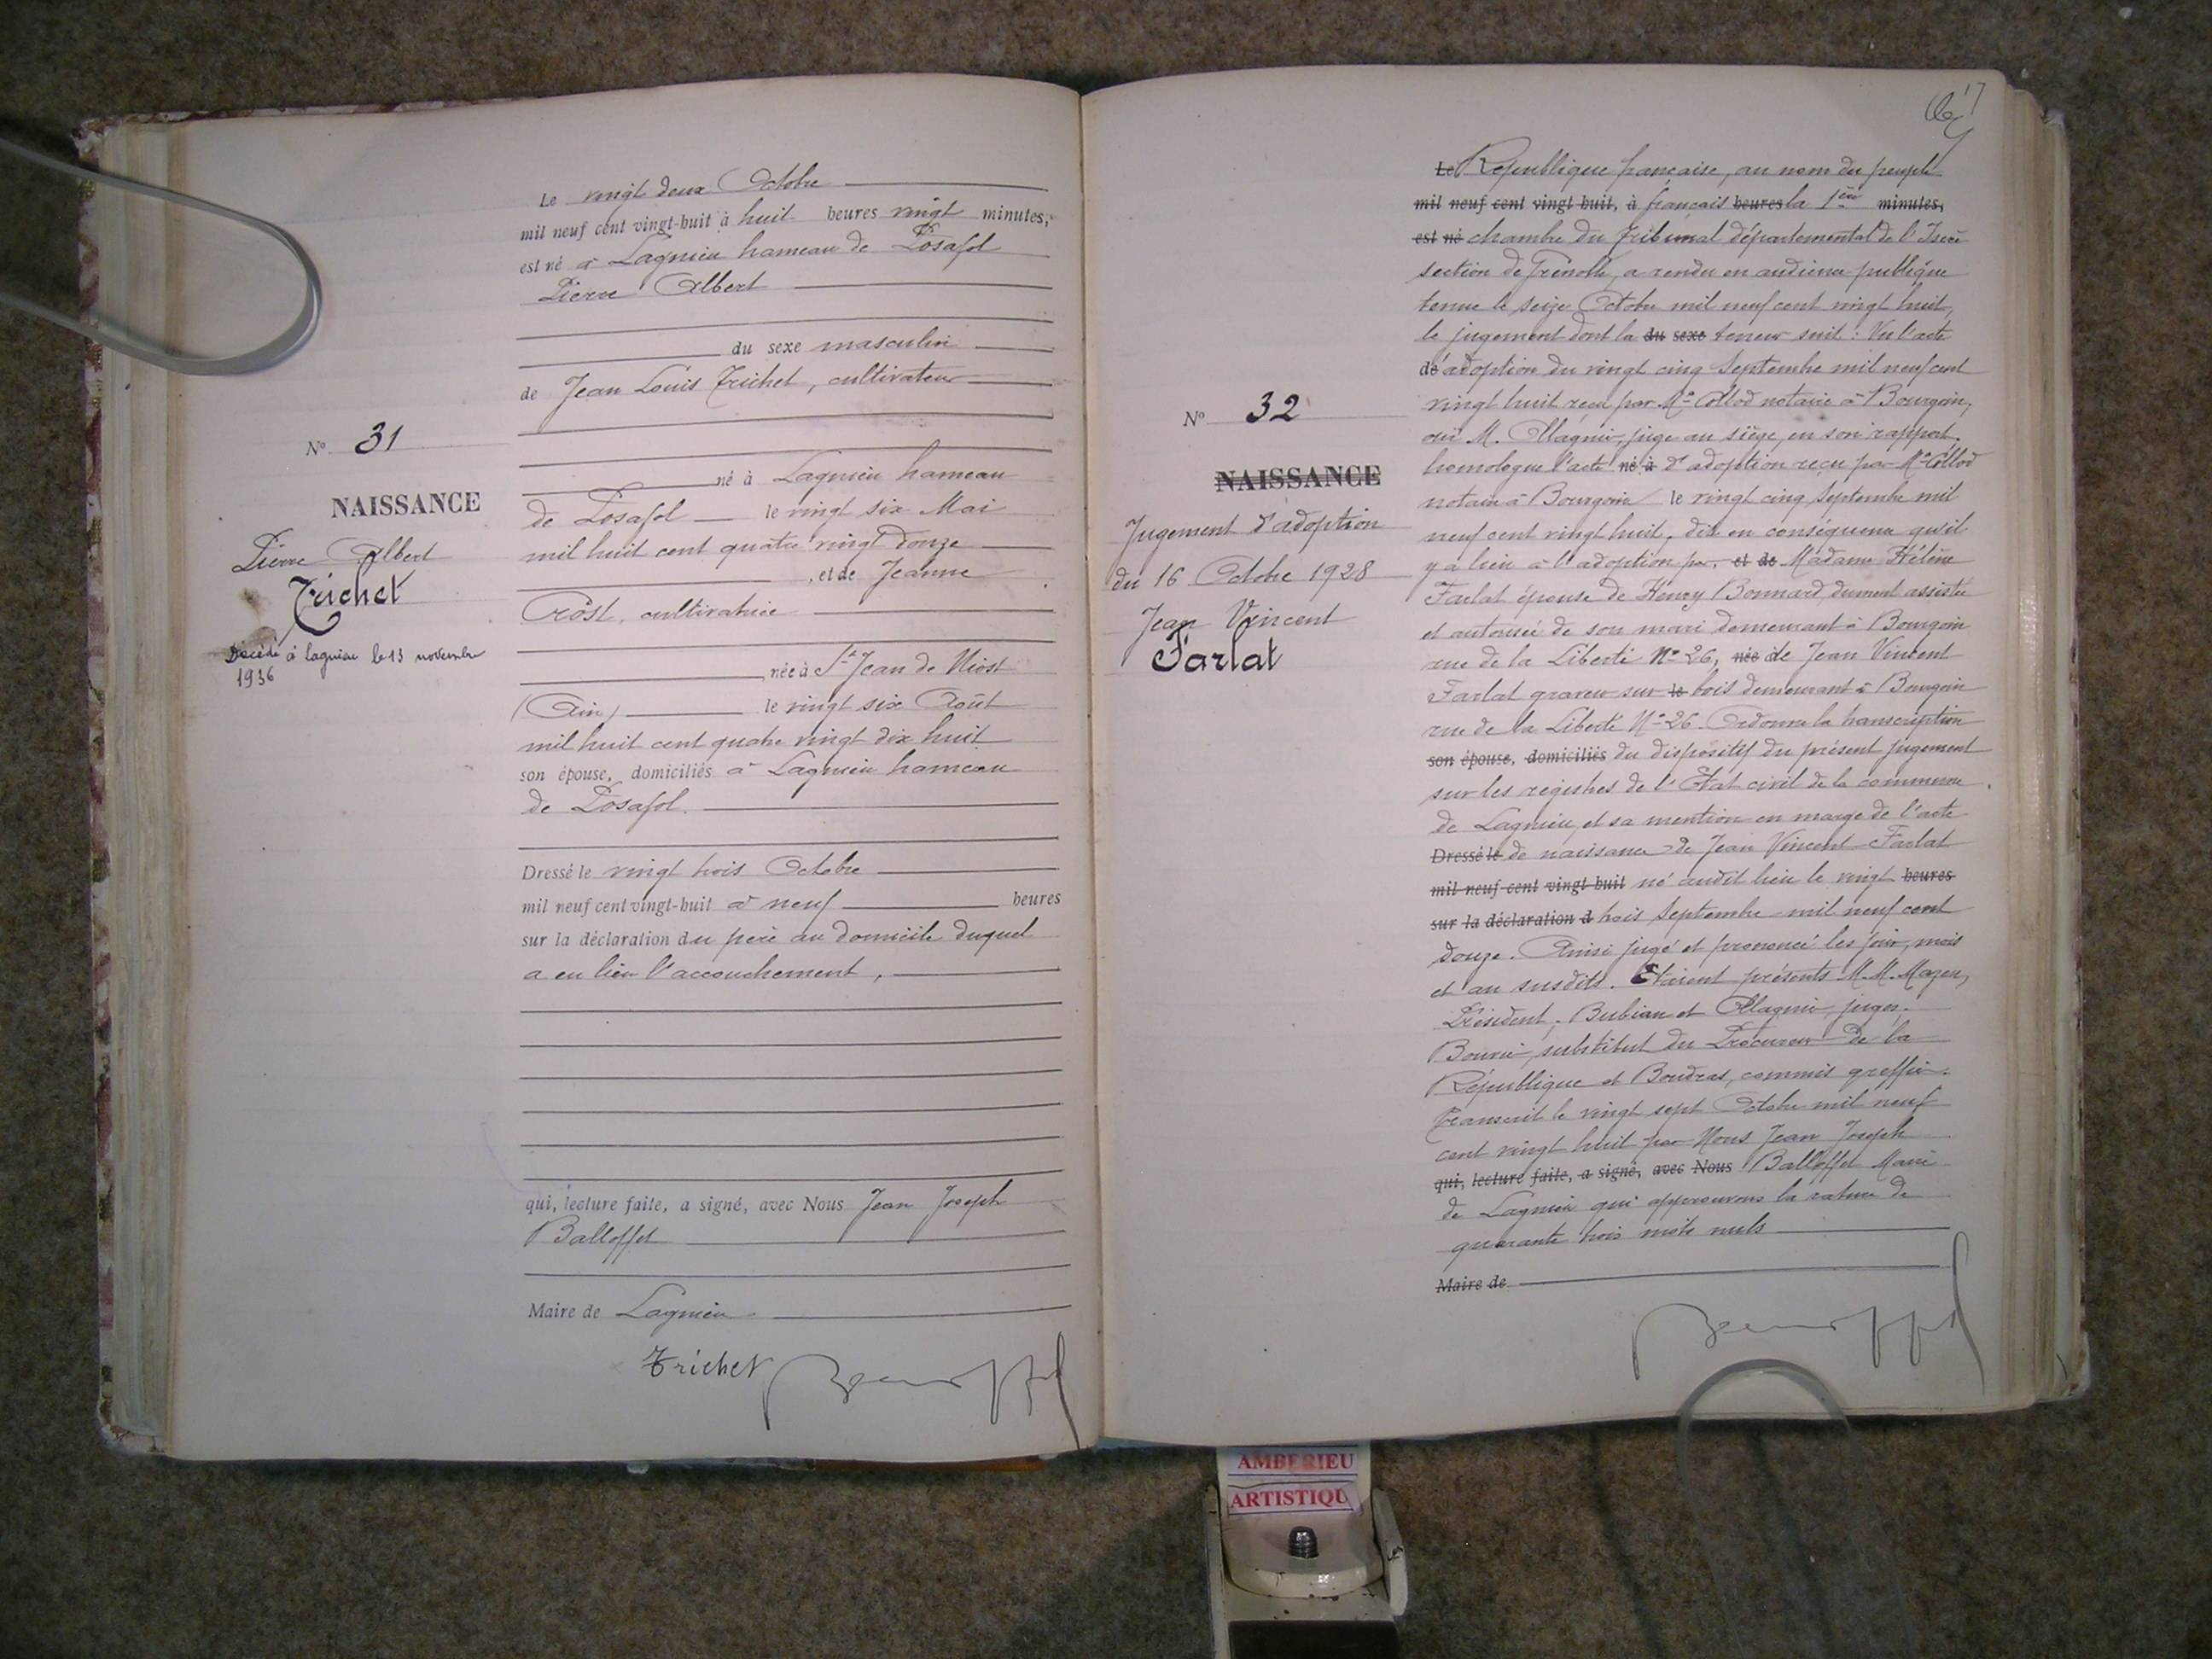 Le vingt deux Octobre
mil neuf cent vingt-huit à huit heures vingt minutes,
est né à Lagnieu hameau de Posafol
Pierre Albert
du sexe masculin
de Jean Louis Trichet, cultivateur
né à Lagnieu hameau
de Posafol le vingt six Mai
mil huit cent quatre vingt douze
, et de Jeanne
Cróst, cultivatrice
, née à St Jean de Niost
(Ain) le vingt six Août
mil huit cent quatre vingt dix huit
son épouse, domiciliés à Lagnieu hameau
de Posafol.
Dressé le vingt trois Octobre
mil neuf cent vingt-huit à neuf heures
sur la déclaration du père au domicile duquel
a eu lieu l'accouchement,
qui, lecture faite, a signé, avec Nous Jean Joseph
Balloffet
Maire de Lagnieu
Trichet
No 31
NAISSANCE
Pierre Albert
Trichet
Décédé à Lagnieu le 13 novembre
1936
No 32
NAISSANCE
Jugement d'adoption
du 16 Octobre 1928
Jean Vincent
Farlat
Le République française, au nom du peuple
mil neuf cent vingt-huit, à français heures la 1ère minutes,
est né chambre du Tribunal départemental de l'Isère
section de Grenoble, a rendu en audience publique
tenue le seize Octobre mil neuf cent vingt huit,
le jugement dont la du sexe teneur suit : Vu l'acte
de d'adoption du vingt cinq Septembre mil neuf cent
vingt huit reçu par Me Collod notaire à Bourgoin,
ouï M. Allagnier, juge au siège, en son rapport.
homologue l'acte né à d'adoption reçu par Me Collod
notaire à Bourgoin le vingt cinq Septembre mil
neuf cent vingt huit, dit en conséquence qu'il
y a lieu à l'adoption par et de Madame Hélène
Farlat épouse de Henry Bonnard, dument assistée
et autorisée de son mari demeurant à Bourgoin
rue de la Liberté No 26, née de Jean Vincent
Farlat graveur sur le bois demeurant à Bourgoin
rue de la Liberté No 26. Ordonne la transcription
son épouse, domiciliés du dispositif du présent jugement
sur les registres de l'Etat civil de la commune
de Lagnieu, et sa mention en marge de l'acte
Dressé le de naissance de Jean Vincent Farlat
mil neuf cent vingt-huit né audit lieu le vingt heures
sur la déclaration d trois Septembre mil neuf cent
douze. Ainsi jugé et prononcé les jour, mois
et an susdits. Etaient présents M.M. Mazen,
Président, Bubian et Allagnier, juges.
Bourie, substitut du Procureur de la
République et Boudras, commis greffier.
Transcrit le vingt sept Octobre mil neuf
cent vingt huit par Nous Jean Joseph
qui, lecture faite, a signé, avec Nous Balloffet Maire
de Lagnieu qui approuvons la rature de
quarante trois mots nuls
Maire de
AMBERIEU
ARTISTIQU